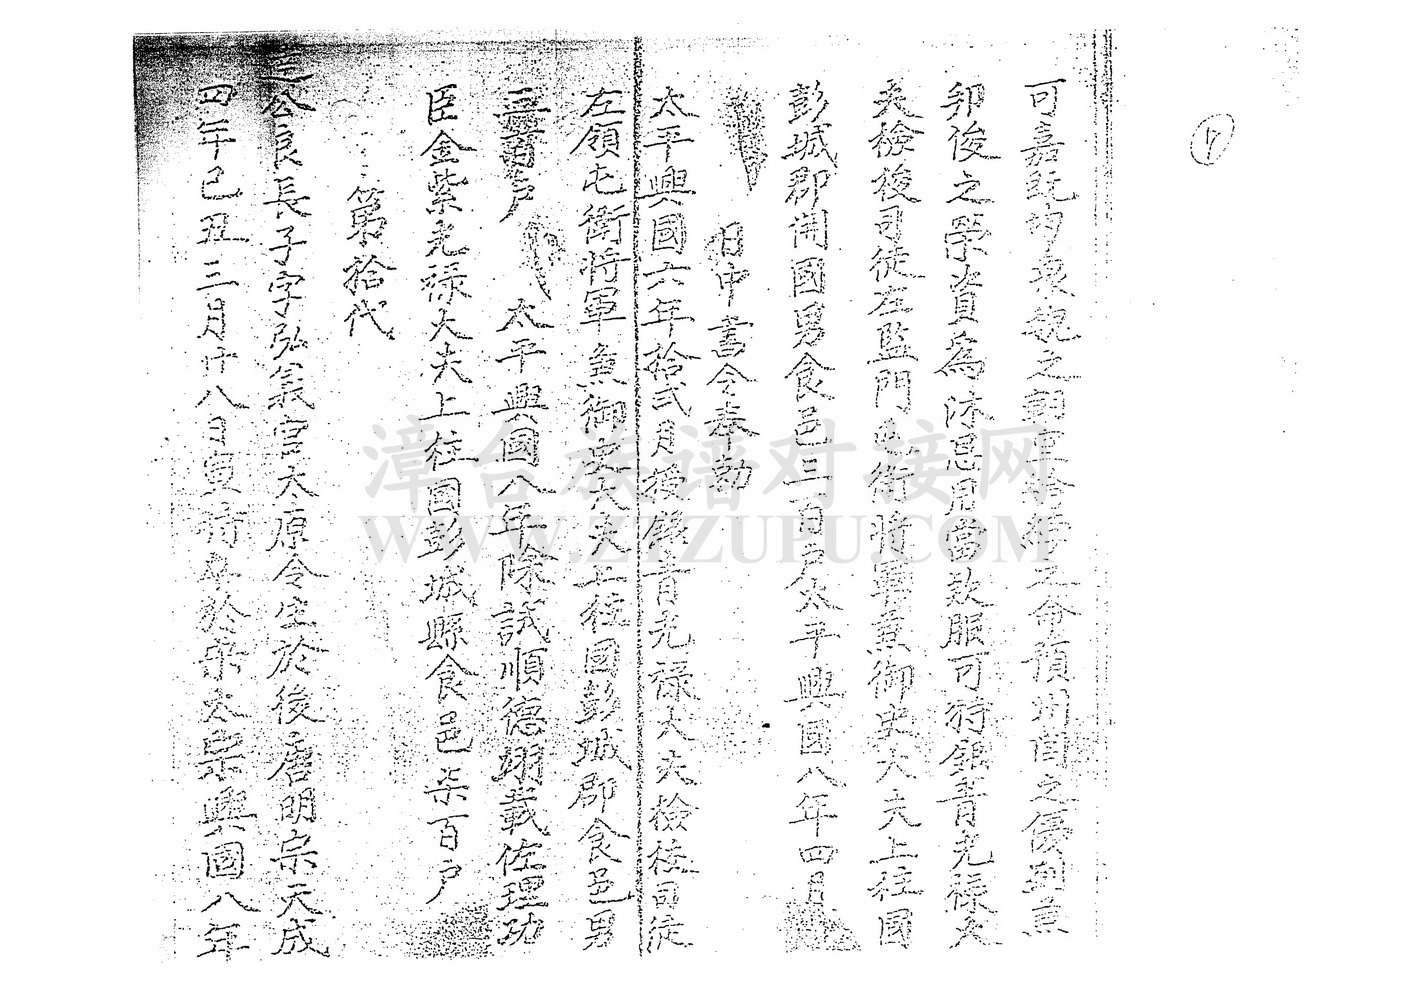 可嘉既均哀執之朝軍給勞之命預州閭之優列兼
卯俊之榮資為沐恩用當欽服可特銀青光祿大
夫檢後司徒左監門衛將軍兼御史大夫上柱國
彭城郡開國男食邑三百戶太平興國八年四月
日中書令奉勅
太平興國六年拾弍月授銀青光祿大夫檢柱司徒
左領屯衛將軍魚御史大夫上柱國彭城郡食邑男
三百戶 太平興國八年除試順德翊載佐理功
臣金紫光祿大夫上柱國彭城縣食邑柒百戶
第拾代
公良長子字弘義官太原令生於後唐明宗天成
四年己丑三月廿八日寅時卒於宋太宗興國八年
漳台族谱对接网
WWW.ZTZUPU.COM